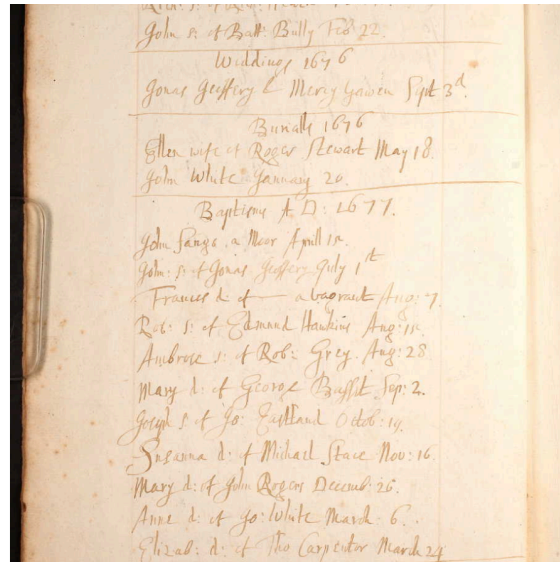 John s: of Batt: Bully Feb 22.
Weddings 1676
Jonas Geffery & Mercy Gawen Sept 3d.
Burialls 1676
Ellen wife of Roger Stewart May 18.
John White January 20.
Baptisms A D: 1677.
John a Moor Aprill
John: s: of Jonas Geffery July 1st
Frances d: of — a vagrant Aug: 7.
Rob: s: of Edmund Hawkins Aug:
Ambrose s: of Rob: Grey. Aug: 28
Mary d: of George Basset. Sep: 2.
Joseph s: of Jo: Eastland Octob: 19.
Susanna d: of Michael Stace Nov: 16
Mary d: of John Rogers Decemb: 26.
Anne d: of Jo: White March 6.
Elizab: d: of Tho Carpenter March 24